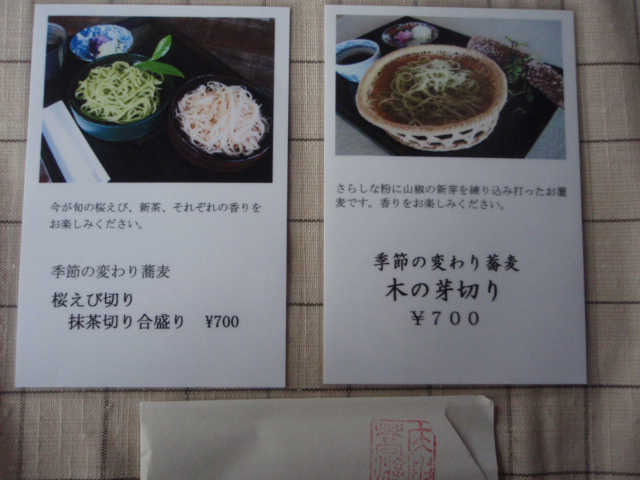 今が旬の桜えび、新茶、それぞれの香りを
お楽しみください。
季節の変わり蕎麦
桜えび切り
抹茶切り合盛り ¥700
さらしな粉に山椒の新芽を練り込み打ったお蕎
麦です。香りをお楽しみください。
季節の変わり蕎麦
木の芽切り
￥７００